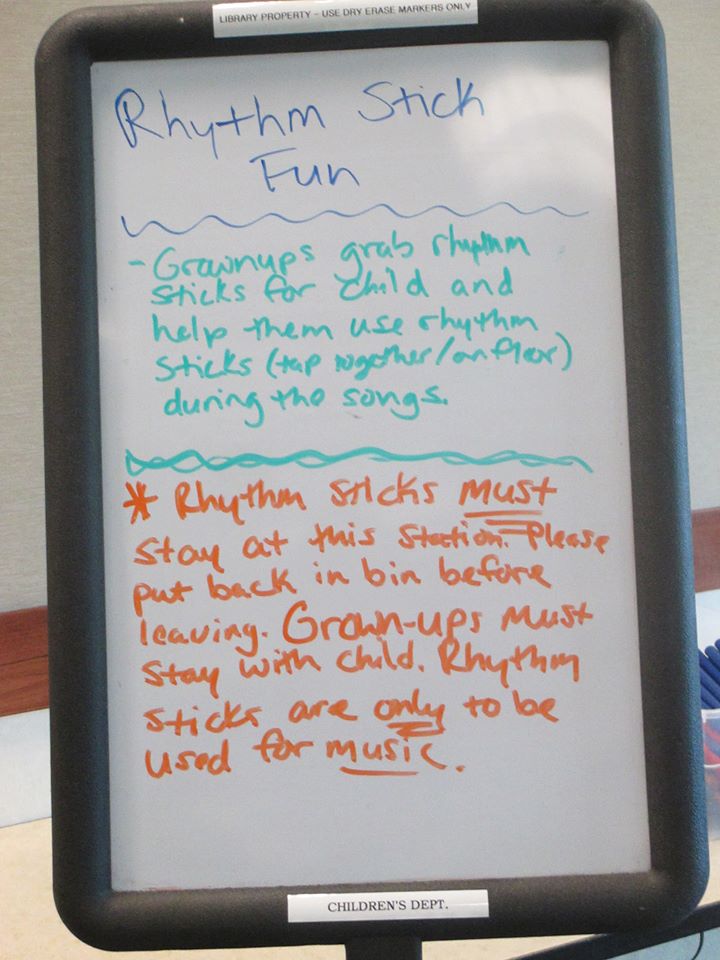 LIBRARY PROPERTY - USE DRY ERASE MARKERS ONLY
Rhythm Stick
Fun
- Grownups grab rhythm
sticks for child and
help them use rhythm
sticks (tap together/on floor)
during the songs.
* Rhythm sticks must
stay at this station. Please
put back in bin before
leaving. Grown-ups must
stay with child. Rhythm
sticks are only to be
used for music.
CHILDREN'S DEPT.